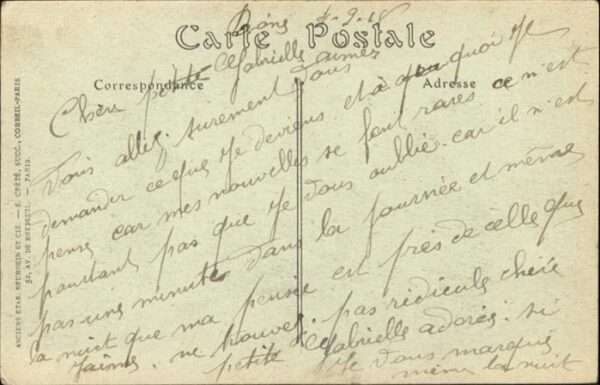 4-9-18
Carte Postale
Correspondance
Adresse
Chère petite Gabrielle aimée
Vous allez surement vous
demander ce que je deviens et à quoi je
pense car mes nouvelles se font rares ce n'est
pourtant pas que je vous oublie. car il n'est
pas une minute dans la journée et même
la nuit que ma pensée est près de celle que
j'aime. ne trouvez pas ridicule chère
petite Gabrielle adorée: si
je vous marque
même la nuit
ANCIENS ETAB. NEURDEIN ET CIE. — E. CRÉTÉ, SUCC., CORBEIL-PARIS
52, AV. DE BRETEUIL. — PARIS.